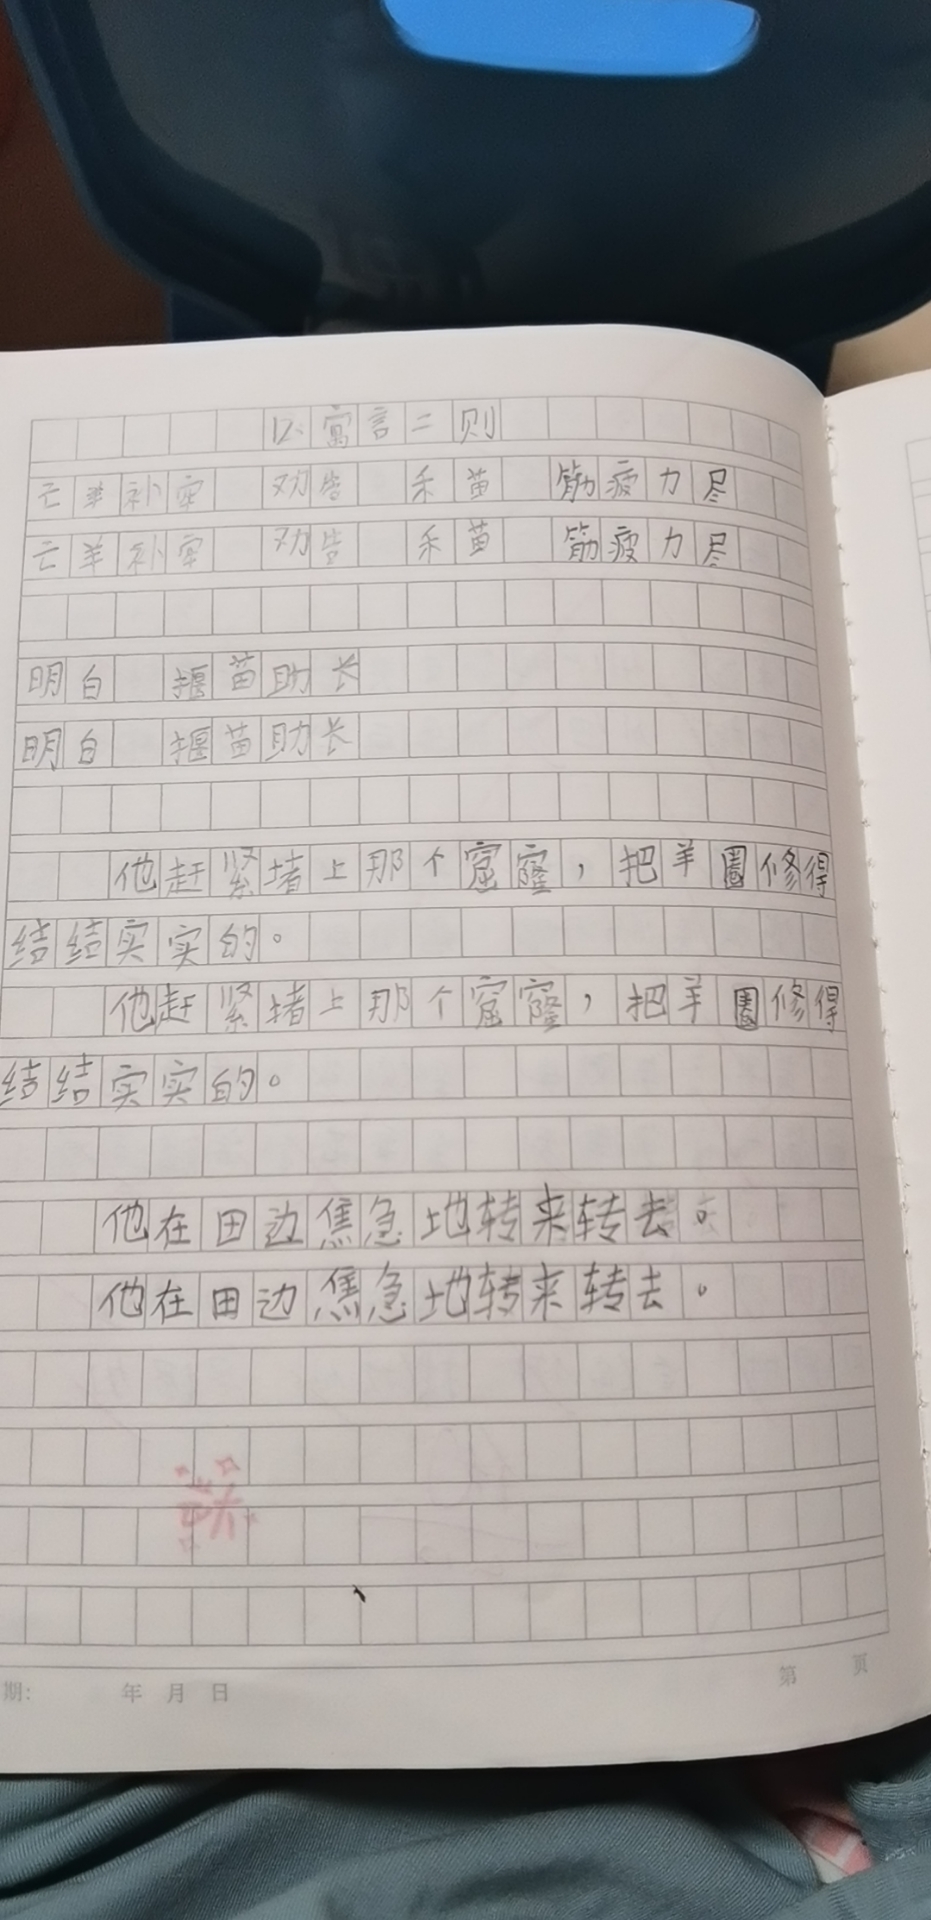 12、寓言二则
亡羊补牢 劝告 禾苗 筋疲力尽
亡羊补牢 劝告 禾苗 筋疲力尽
明白 揠苗助长
明白 揠苗助长
他赶紧堵上那个窟窿，把羊圈修得
结结实实的。
他赶紧堵上那个窟窿，把羊圈修得
结结实实的。
他在田边焦急地转来转去。
他在田边焦急地转来转去。
期: 年 月 日 第 页